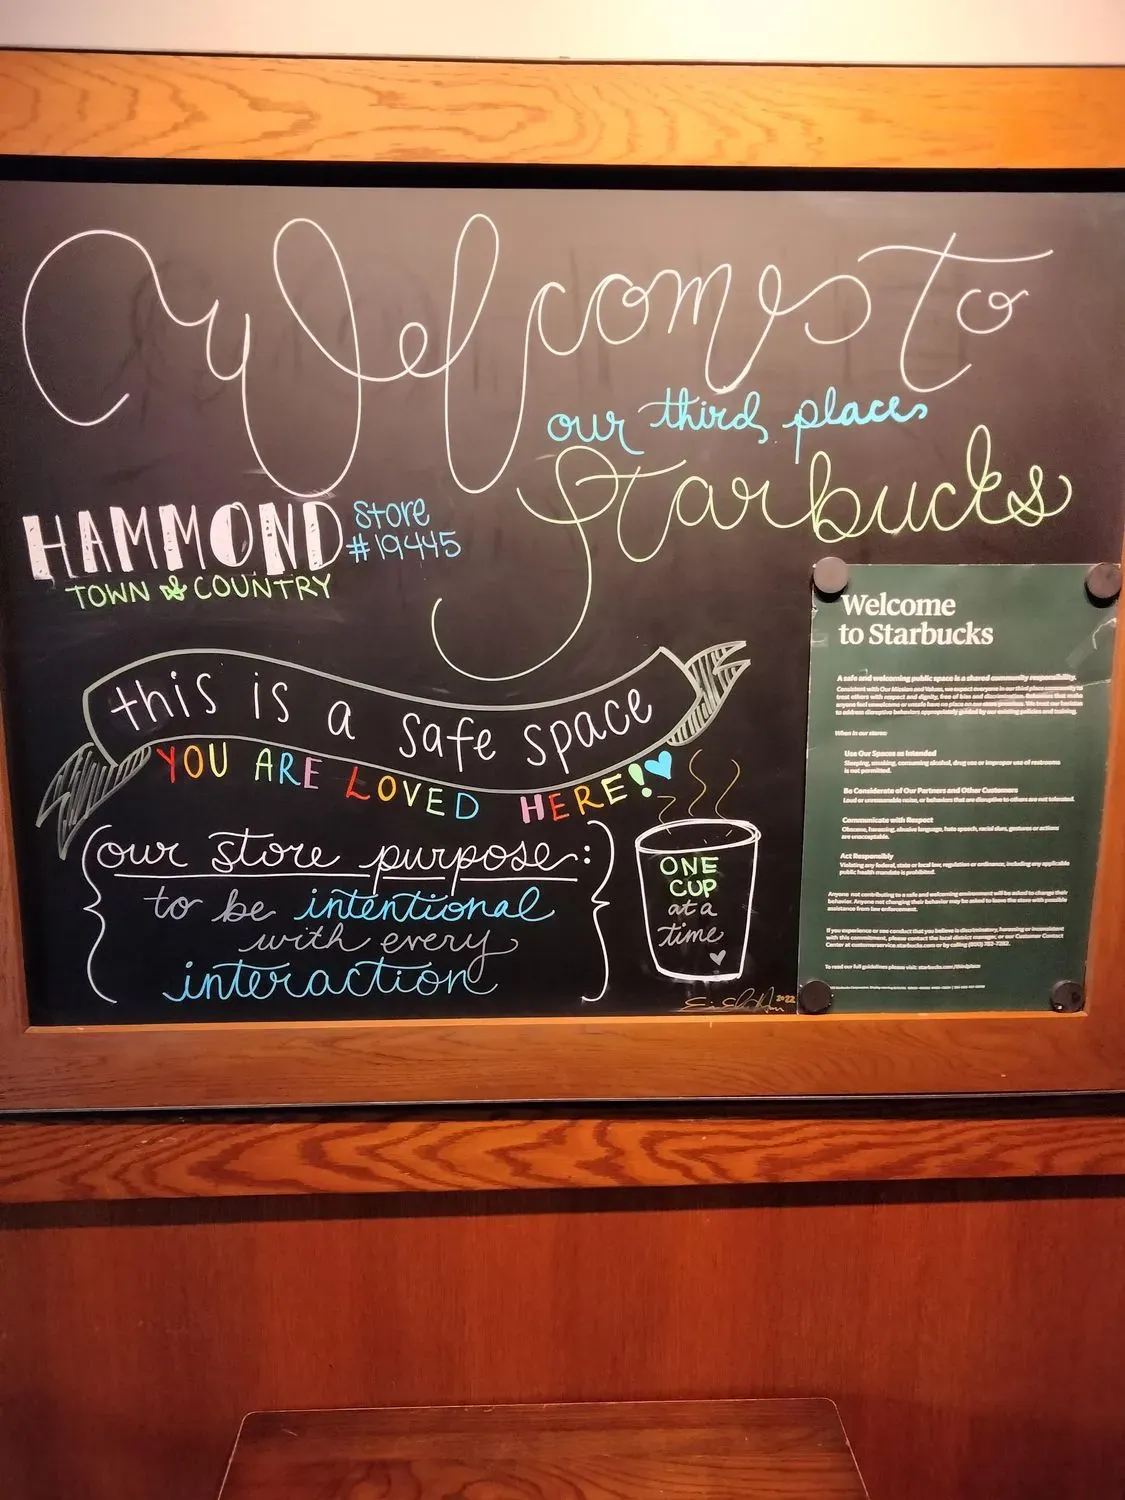 Welcome to
our third place
Starbucks
HAMMOND
Store
#19445
TOWN & COUNTRY
this is a safe space
YOU ARE LOVED HERE!
our store purpose:
to be intentional
with every
interaction
ONE
CUP
at a
time
2022
Welcome
to Starbucks
A safe and welcoming public space is a shared community responsibility.
Consistent with Our Mission and Values, we expect everyone in our third place community to
treat others with respect and dignity, free of bias and discrimination. Behaviors that make
anyone feel unwelcome or unsafe have no place on our store premises. We trust our baristas
to address disruptive behaviors appropriately guided by our existing policies and training.
When in our stores:
Use Our Spaces as Intended
Sleeping, smoking, consuming alcohol, drug use or improper use of restrooms
is not permitted.
Be Considerate of Our Partners and Other Customers
Loud or unreasonable noise, or behaviors that are disruptive to others are not tolerated.
Communicate with Respect
Obscene, harassing, abusive language, hate speech, racial slurs, gestures or actions
are unacceptable.
Act Responsibly
Violating any federal, state or local law, regulation or ordinance, including any applicable
public health mandate is prohibited.
Anyone not contributing to a safe and welcoming environment will be asked to change their
behavior. Anyone not changing their behavior may be asked to leave the store with possible
assistance from law enforcement.
If you experience or see conduct that you believe is discriminatory, harassing or inconsistent
with this commitment, please contact the local district manager, or our Customer Contact
Center at customerservice@starbucks.com or by calling (800) 782-7282.
To read our full guidelines please visit: starbucks.com/thirdplace